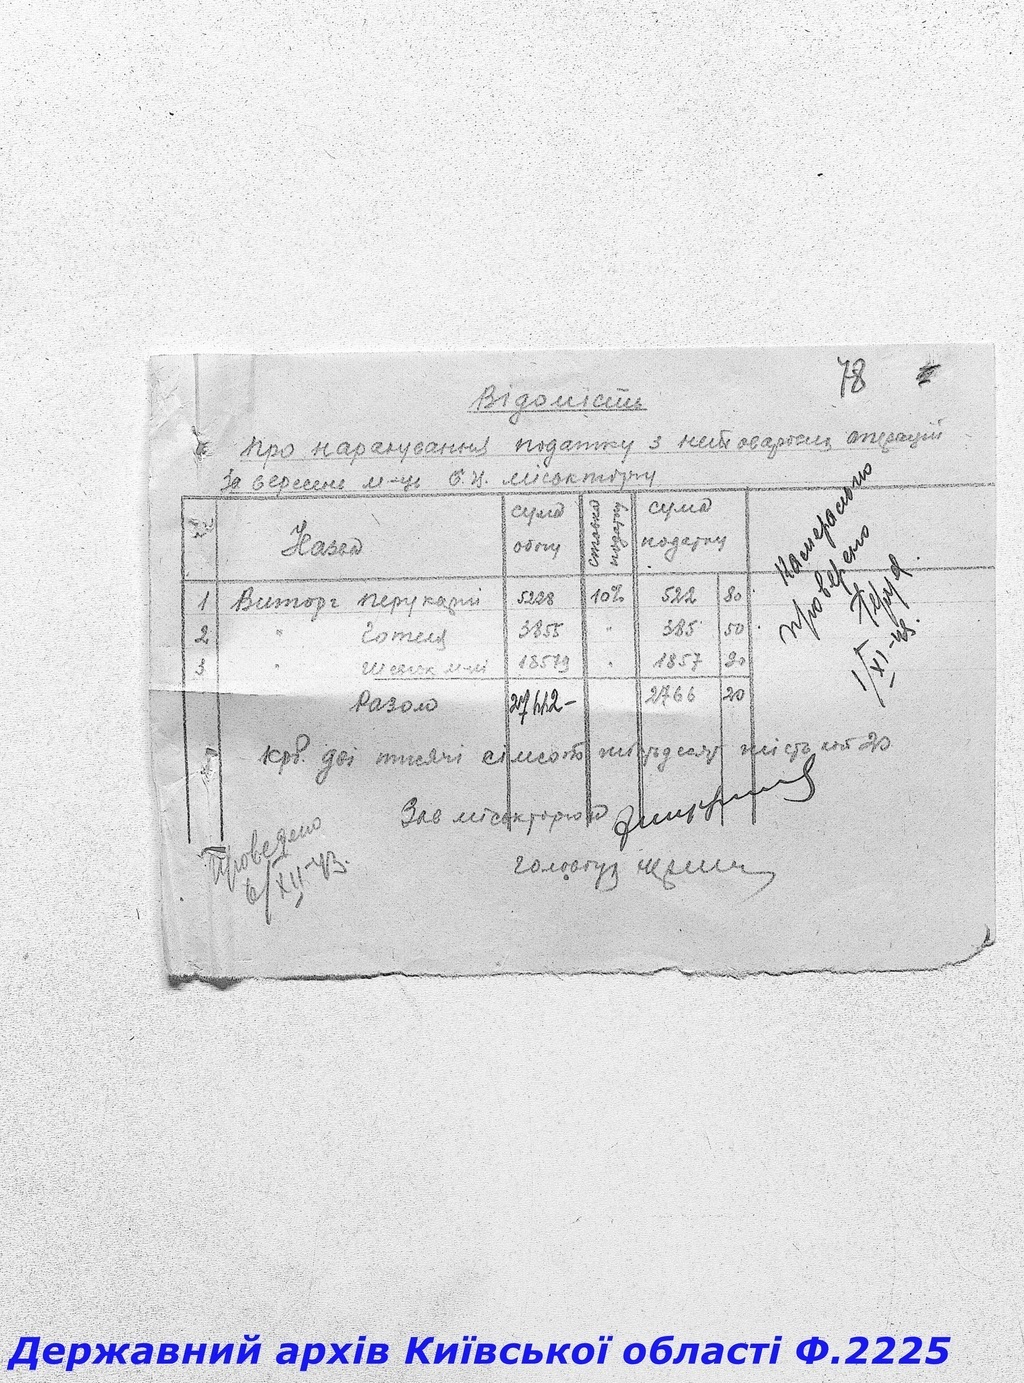 78
Відомість
Про нарахування податку з нетоварових операцій
За вересень м-ць Б.Ц. міськторгу
Назва
сума обігу
ставка податку
сума податку
1 Виторг перукарні 5228 10% 522 80
2 " Готеля 3855 " 385 50
3 " 18579 " 1857 90
Разом 2766 20
крб. дві тисячі сімсот шістьдесят шість коп 20
Зав міськторгом
Головбух
Камерально
проверено
1/XI-43.
Проведено
6/XII-43.
Державний архів Київської області Ф.2225